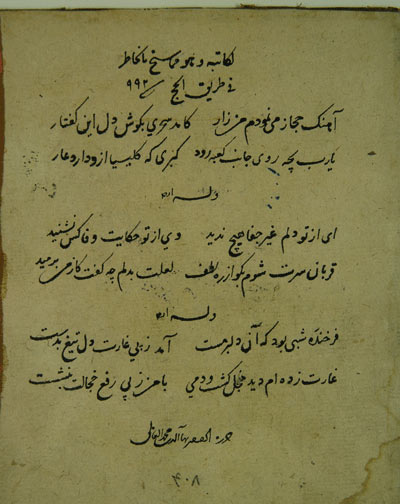 لكاتبه و هو مما سنح بالخاطر
فی طریق الحج ۹۹۲
آهنگ حجاز می نمودم من زار کامد سحری بکوش دل این گفتار
یارب بچه روی جانب کعبه رود کبری که کلیسیا ازو دارد عار
وله ایضا
ای از تو دلم غیر جفا هیچ ندید وی از تو حکایت وفا کس نشنید
قربان سرت شوم بکو از ره لطف لعلت بدلم چه گفت کز من برمید
وله ایضا
فرخنده شبی بود که آن دلبر مست آمد ز پی غارت دل تیغ بدست
غارت زده ام دید خجل کشت و دمی با من ز پی رفع خجالت بنشست
بهاء الدین محمد العاملی
۴۰۸